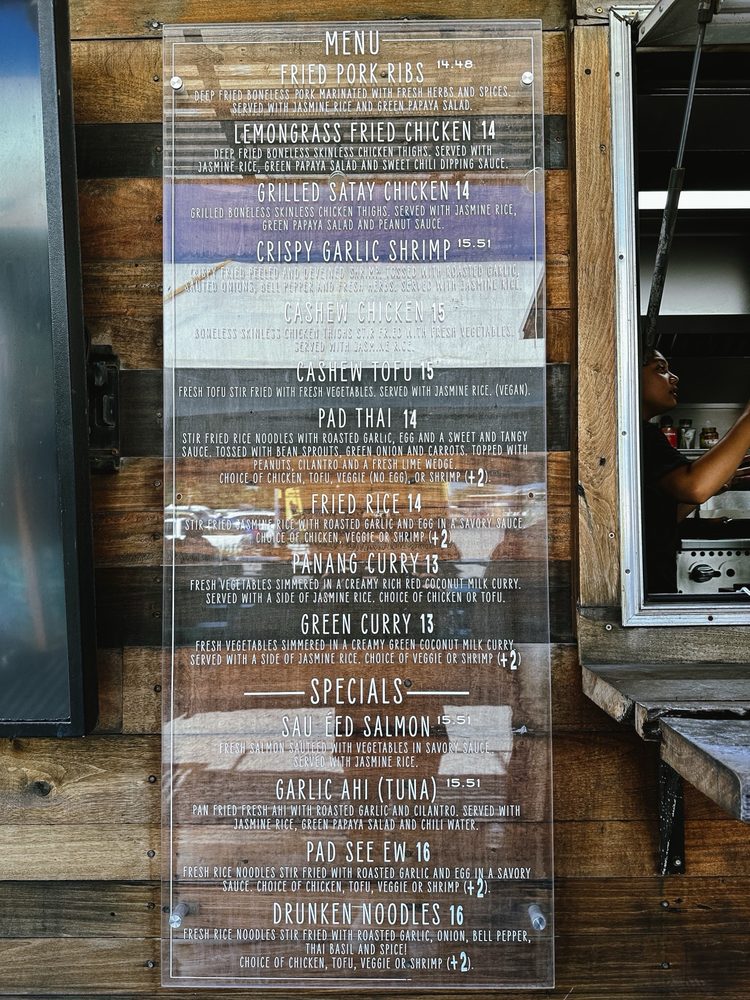 MENU
FRIED PORK RIBS 14.48
DEEP FRIED BONELESS PORK MARINATED WITH FRESH HERBS AND SPICES.
SERVED WITH JASMINE RICE AND GREEN PAPAYA SALAD.
LEMONGRASS FRIED CHICKEN 14
DEEP FRIED BONELESS SKINLESS CHICKEN THIGHS. SERVED WITH
JASMINE RICE, GREEN PAPAYA SALAD AND SWEET CHILI DIPPING SAUCE.
GRILLED SATAY CHICKEN 14
GRILLED BONELESS SKINLESS CHICKEN THIGHS. SERVED WITH JASMINE RICE,
GREEN PAPAYA SALAD AND PEANUT SAUCE.
CRISPY GARLIC SHRIMP 15.51
CRISPY FRIED PEELED AND DEVEINED SHRIMP TOSSED WITH ROASTED GARLIC,
SAUTED ONIONS, BELL PEPPER AND FRESH HERBS. SERVED WITH JASMINE RICE.
CASHEW CHICKEN 15
BONELESS SKINLESS CHICKEN THIGHS STIR FRIED WITH FRESH VEGETABLES.
SERVED WITH JASMINE RICE.
CASHEW TOFU 15
FRESH TOFU STIR FRIED WITH FRESH VEGETABLES. SERVED WITH JASMINE RICE. (VEGAN).
PAD THAI 14
STIR FRIED RICE NOODLES WITH ROASTED GARLIC, EGG AND A SWEET AND TANGY
SAUCE. TOSSED WITH BEAN SPROUTS, GREEN ONION AND CARROTS. TOPPED WITH
PEANUTS, CILANTRO AND A FRESH LIME WEDGE.
CHOICE OF CHICKEN, TOFU, VEGGIE (NO EGG), OR SHRIMP (+2).
FRIED RICE 14
STIR FRIED JASMINE RICE WITH ROASTED GARLIC AND EGG IN A SAVORY SAUCE.
CHOICE OF CHICKEN, VEGGIE OR SHRIMP (+2)
PANANG CURRY 13
FRESH VEGETABLES SIMMERED IN A CREAMY RICH RED COCONUT MILK CURRY.
SERVED WITH A SIDE OF JASMINE RICE. CHOICE OF CHICKEN OR TOFU.
GREEN CURRY 13
FRESH VEGETABLES SIMMERED IN A CREAMY GREEN COCONUT MILK CURRY
SERVED WITH A SIDE OF JASMINE RICE. CHOICE OF VEGGIE OR SHRIMP (+2)
SPECIALS
SAU ÉED SALMON 15.51
FRESH SALMON SAUTEED WITH VEGETABLES IN SAVORY SAUCE.
SERVED WITH JASMINE RICE.
GARLIC AHI (TUNA) 15.51
PAN FRIED FRESH AHI WITH ROASTED GARLIC AND CILANTRO. SERVED WITH
JASMINE RICE, GREEN PAPAYA SALAD AND CHILI WATER.
PAD SEE EW 16
FRESH RICE NOODLES STIR FRIED WITH ROASTED GARLIC AND EGG IN A SAVORY
SAUCE. CHOICE OF CHICKEN, TOFU, VEGGIE OR SHRIMP (+2).
DRUNKEN NOODLES 16
FRESH RICE NOODLES STIR FRIED WITH ROASTED GARLIC, ONION, BELL PEPPER,
THAI BASIL AND SPICE!
CHOICE OF CHICKEN, TOFU, VEGGIE OR SHRIMP (+2).